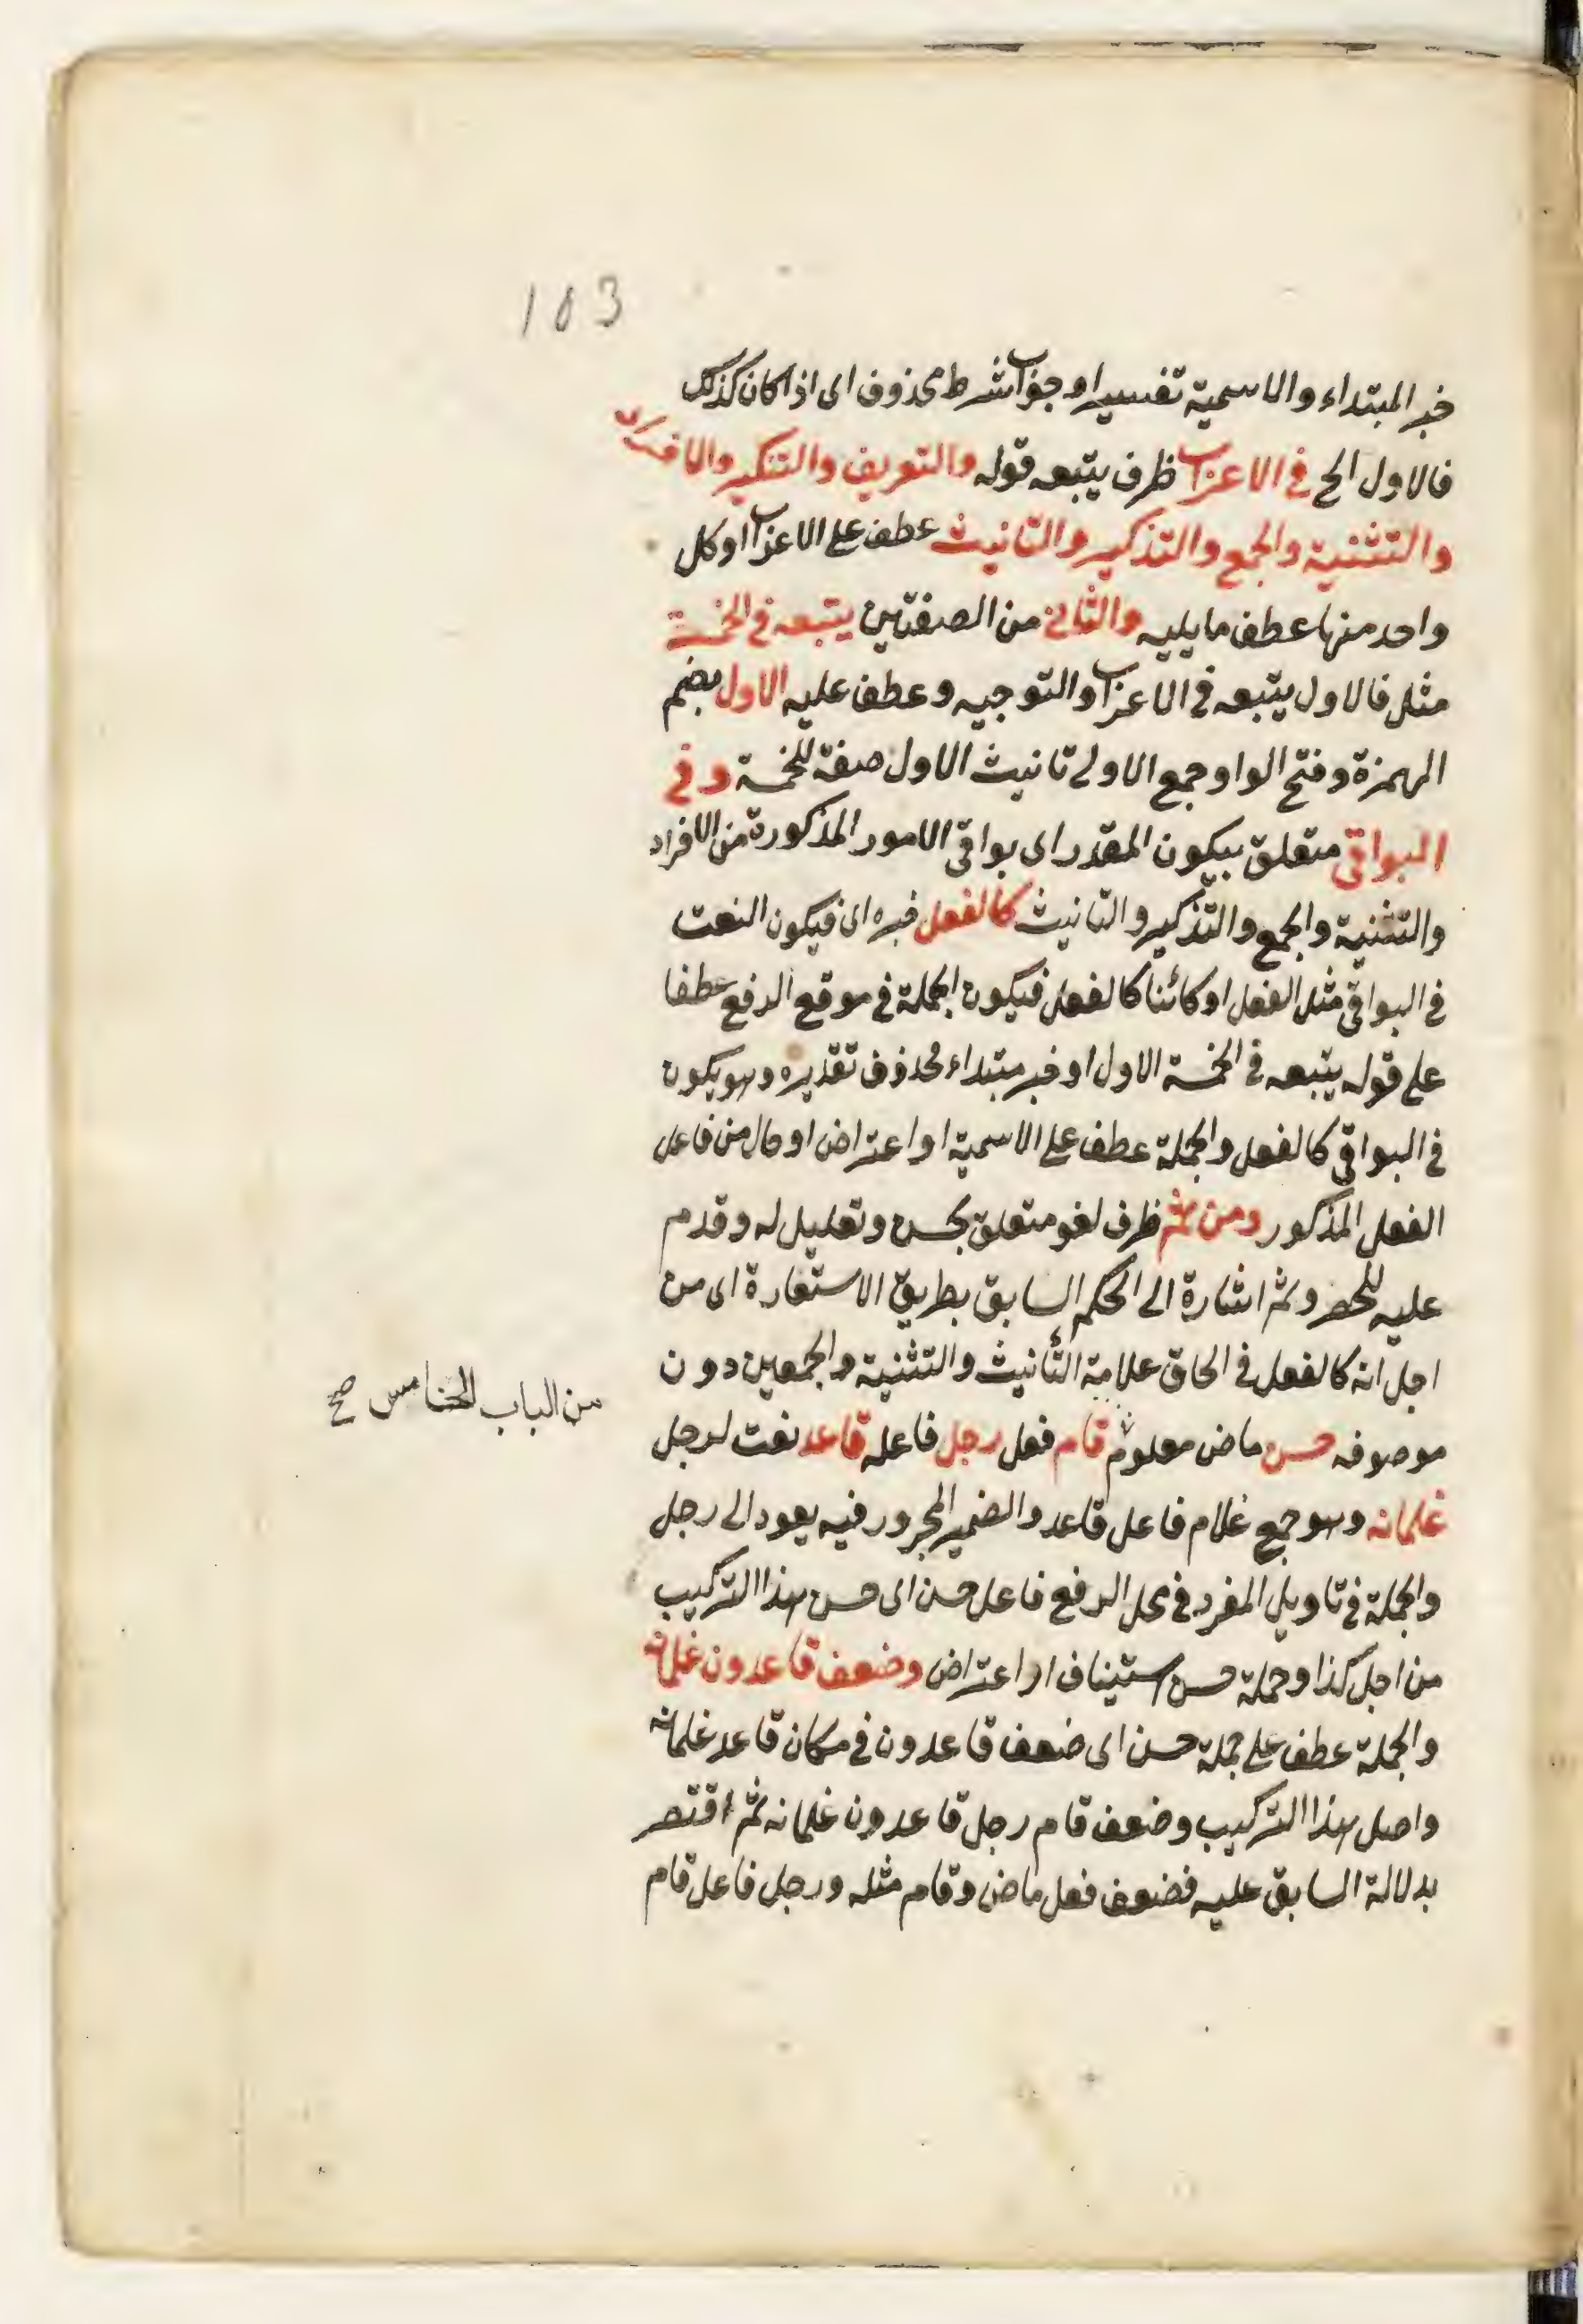 103
خبر المبتداء والاسمية تفسير او جواب شرط محذوف اى اذا كان كذلك
فالاول الخ فى الاعراب ظرف يتبعه قوله والتعريف والتنكير والافراد
والتثنية والجمع والتذكير والتانيث عطف على الاعراب او كل
واحد منها عطف ما يليه والثانى من الصفتين يتبعه فى الخمسة
مثل فالاول يتبعه فى الاعراب والتوجيه وعطف عليه الاول بضم
الهمزة وفتح الواو جمع الاولى تانيث الاول صفة للخمسة وفى
البواقى متعلق بيكون المقدر اى بواقى الامور المذكورة من الافراد
والتثنية والجمع والتذكير والتانيث كالفعل خبره اى فيكون النعت
فى البواقى مثل الفعل او كائنا كالفعل فيكون الجملة فى موقع الرفع عطفا
على قوله يتبعه فى الخمسة الاول او خبر مبتداء محذوف تقديره وهو يكون
فى البواقى كالفعل والجملة عطف على الاسمية او اعتراض او حال من فاعل
الفعل المذكور ومن ثم ظرف لغو متعلق بحسن وتعليل له وقدم
عليه للحصر وثم اشارة الى الحكم السابق بطريق الاستعارة اى من
اجل انه كالفعل فى الحاق علامة التأنيث والتثنية والجمعين دون
موصوفه حسن ماض معلوم قام فعل رجل فاعله قاعد نعت لرجل
من الباب الخامس صح
غلمانه وهو جمع غلام فاعل قاعد والضمير المجرور فيه يعود الى رجل
والجملة فى تاويل المفرد فى محل الرفع فاعل حسن اى حسن هذا التركيب
من اجل كذا وجملة حسن استيناف او اعتراض وضعف قاعدون غلمانه
والجملة عطف على جملة حسن اى ضعف قاعدون فى مكان قاعد غلمانه
واصل هذا التركيب وضعف قام رجل قاعدون غلمانه ثم اقتصر
بدلالة السابق عليه فضعف فعل ماض وقام مثله ورجل فاعل قام